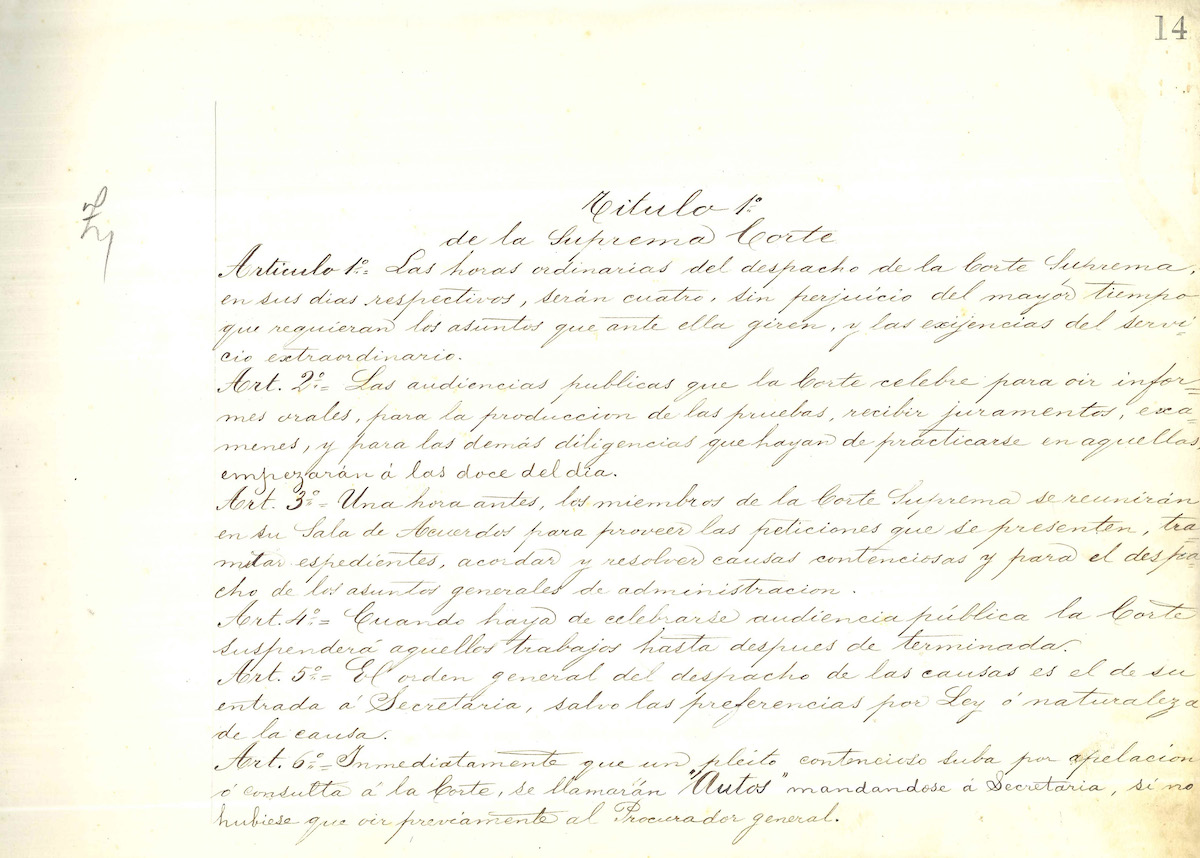 14
Titulo 1º
de la Suprema Corte
Articulo 1º= Las horas ordinarias del despacho de la Corte Suprema,
en sus dias respectivos, serán cuatro, sin perjuicio del mayor tiempo
que requieran los asuntos que ante ella giren, y las exijencias del servi=
cio extraordinario.
Art. 2º= Las audiencias publicas que la Corte celebre para oir infor=
mes orales, para la produccion de las pruebas, recibir juramentos, exá=
menes, y para las demás diligencias que hayan de practicarse en aquellas,
empezarán á las doce del dia.
Art. 3º= Una hora antes, los miembros de la Corte Suprema se reunirán
en su Sala de Acuerdos para proveer las peticiones que se presenten, tra=
mitar espedientes, acordar y resolver causas contenciosas y para el despa=
cho de los asuntos generales de administracion.
Art. 4º= Cuando haya de celebrarse audiencia pública la Corte
suspenderá aquellos trabajos hasta despues de terminada.
Art. 5º= El orden general del despacho de las causas es el de su
entrada á Secretaria, salvo las preferencias por Ley ó naturaleza
de la causa.
Art. 6º= Inmediatamente que un pleito contencioso suba por apelación
ó consulta á la Corte, se llamarán "Autos" mandandose á Secretaria, si no
hubiese que oir previamente al Procurador general.